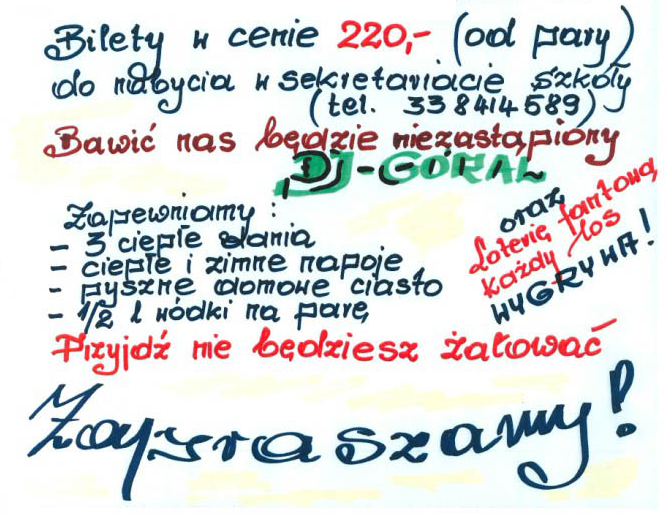 Bilety w cenie 220,- (od pary)
do nabycia w sekretariacie szkoły
(tel. 338414589)
Bawić nas będzie niezastąpiony
DJ-GÓRAL
Zapewniamy:
- 3 ciepłe dania
- ciepłe i zimne napoje
- pyszne domowe ciasto
- 1/2 l wódki na parę
oraz
Loterię fantową
każdy los
WYGRYWA!
Przyjdź nie będziesz żałować
Zapraszamy!